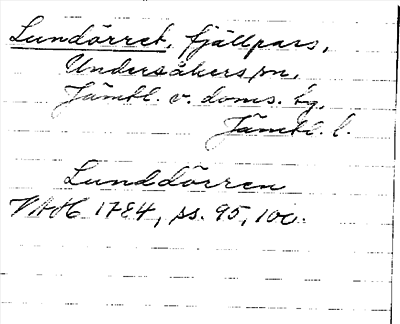 Lundörret, fjällpass,
Undersåkers sn,
Jämtl. v. doms. tg,
Jämtl. l.
Lunddörren
VAH 1784, ss. 95, 100.